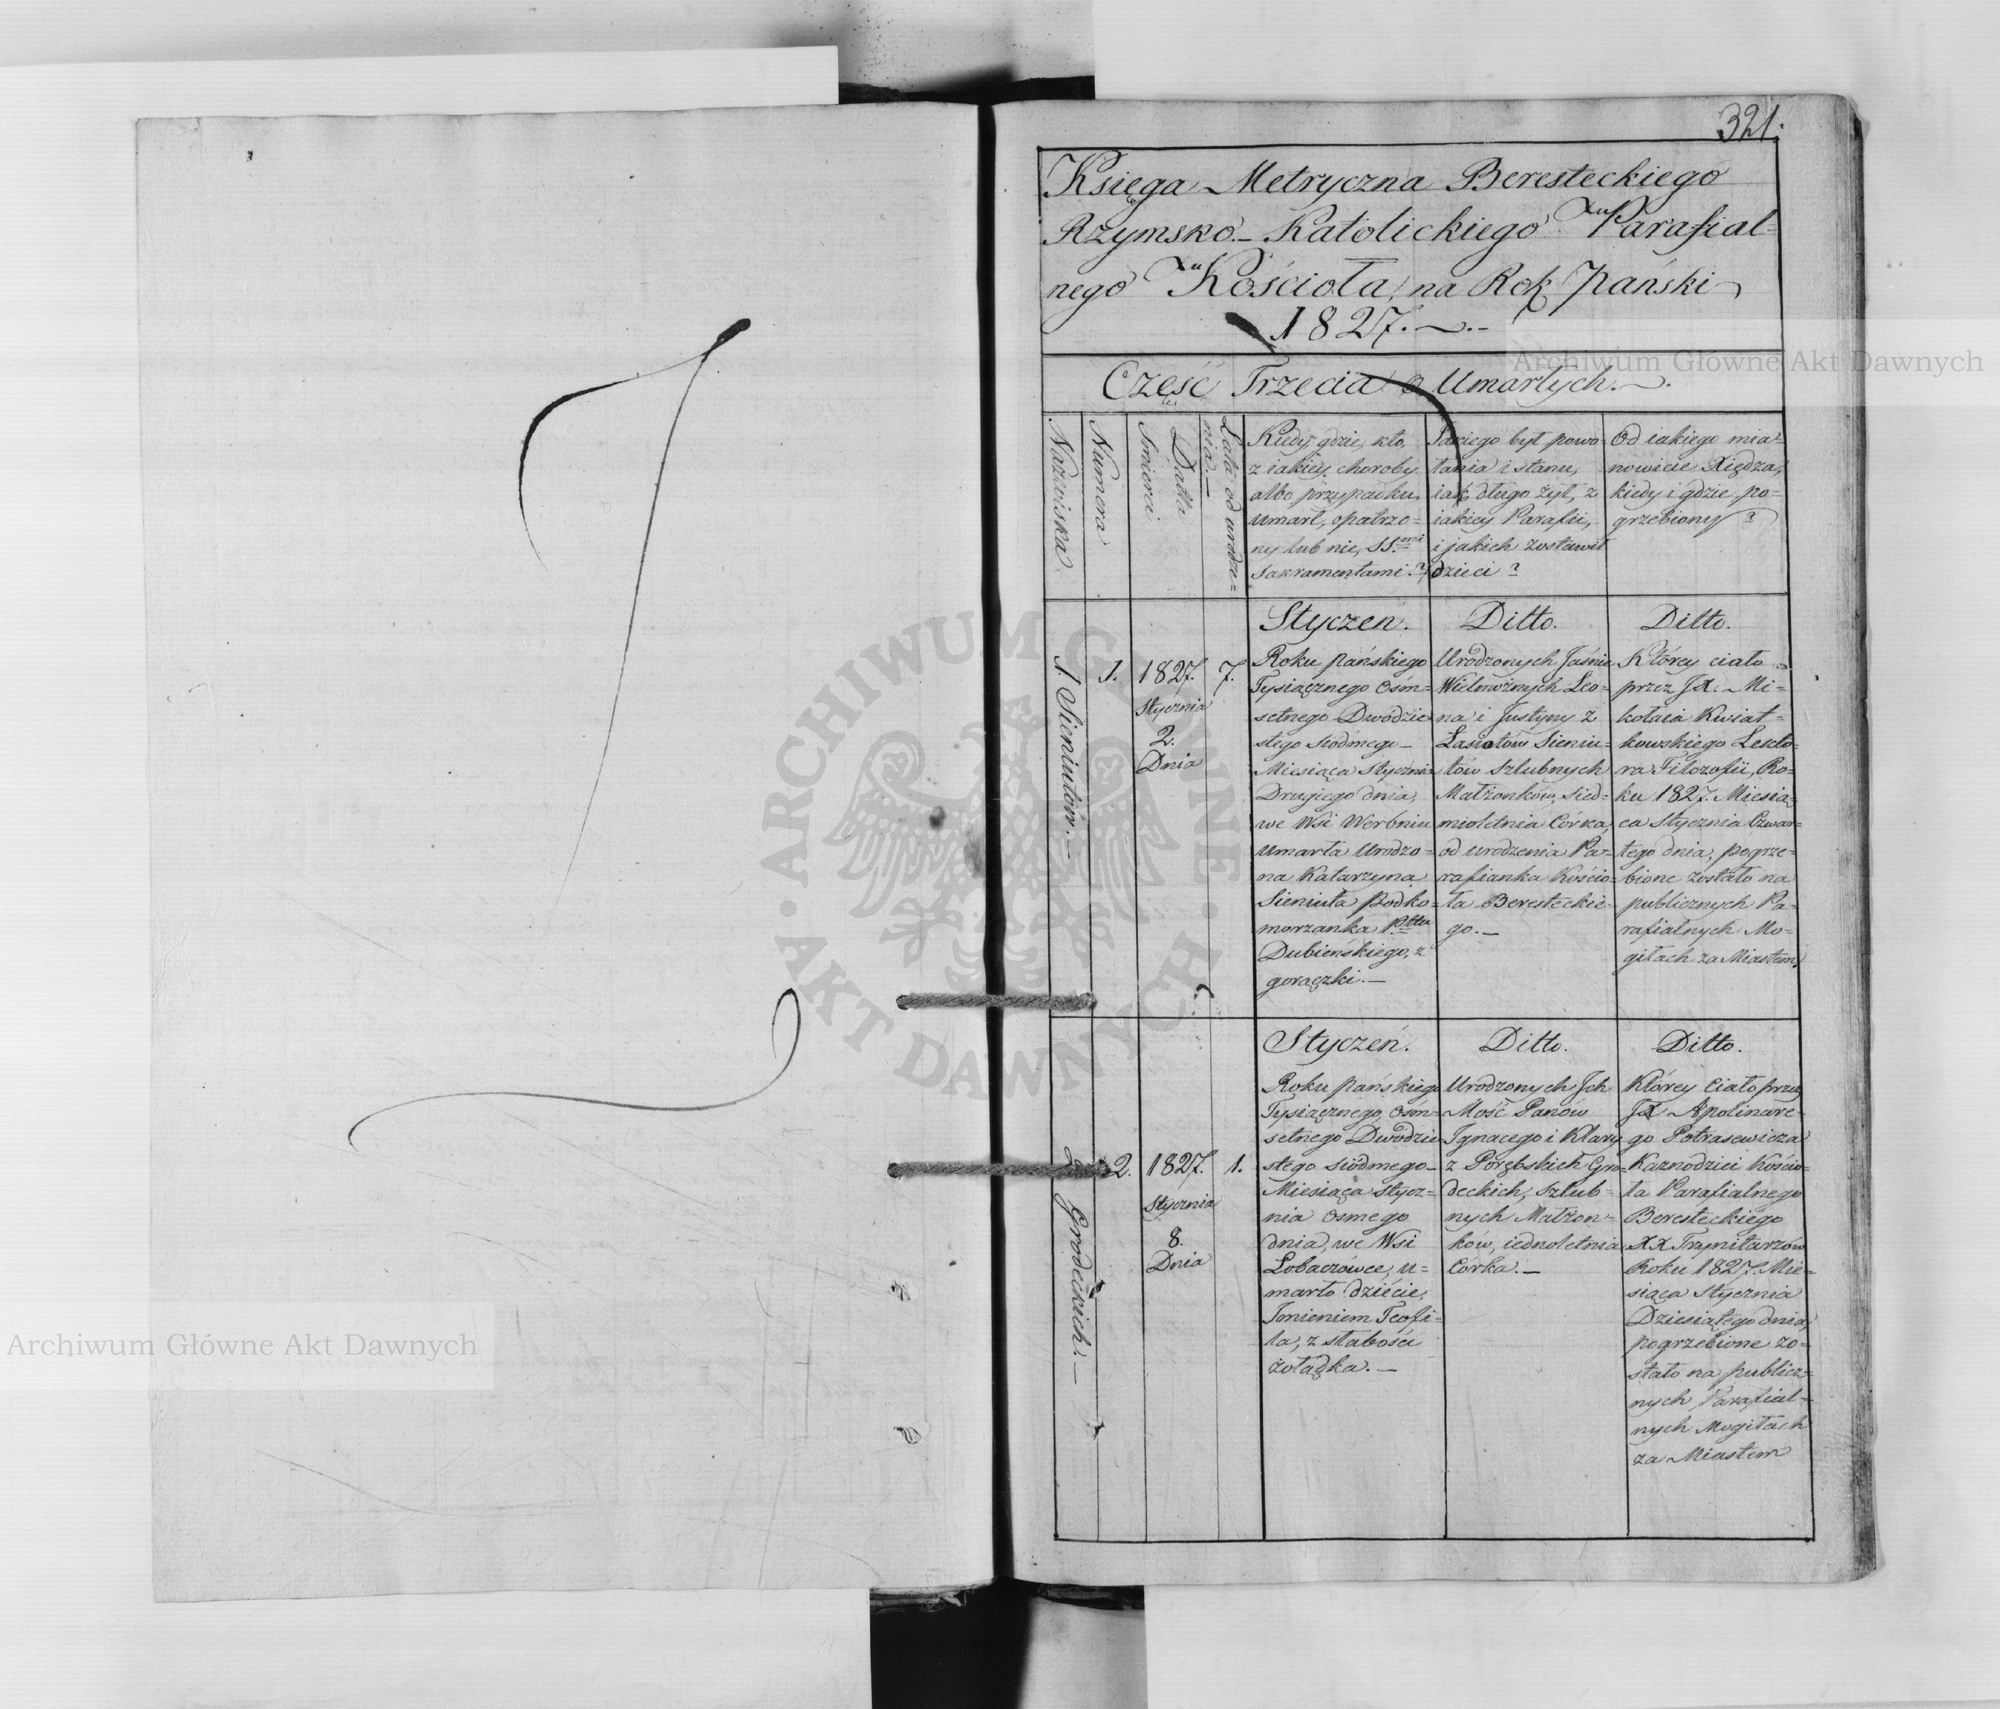 321.
Księga Metryczna Beresteckiego
Rzymsko-Katolickiego Parafial=
nego Kościoła, na Rok Pański
1827.
Część Trzecia o Umarłych.
Nazwiska
Numera
Datta
Śmierci
Lata od urodze=
nia.
Kiedy, gdzie, kto,
z iakiey choroby
albo przypadku,
umarł, opatrzo=
ny lub nie, SS.mi
Sakramentami?
Jakiego był powo=
łania i stanu,
iak długo żył, z
iakiey Parafii,
i jakich zostawił
dzieci?
Od iakiego mia=
nowicie Xiędza,
kiedy i gdzie po=
grzebiony?
1. Sieniutów.
1.
1827.
Stycznia
2.
Dnia
7.
Styczeń.
Roku pańskiego
Tysiącznego Ośm=
setnego Dwódzie
stego siódmego
Miesiąca Stycznia
Drugiego dnia,
we Wsi Werbniu
umarła Urodzo=
na Katarzyna
Sieniuta Podko=
morzanka P.ttu
Dubieńskiego, z
gorączki.
Ditto.
Urodzonych Jaśnie
Wielmożnych Leo=
na i Justyny z
Łasiotów Sieniu=
tów szlubnych
Małżonków, sied=
mioletnia Córka,
od urodzenia Pa=
rafianka Kościo=
ła Beresteckie=
go.
Ditto.
Którey ciało
przez JX. Mi=
kołaia Kwiat=
kowskiego Lekto=
ra Filozofii, Ro=
ku 1827. Miesią=
ca Stycznia Czwar=
tego dnia, pogrze=
bione zostało na
publicznych Pa=
rafialnych Mo=
giłach za Miastem.
Grodeckich.
2.
1827.
Stycznia
8.
Dnia
1.
Styczeń.
Roku pańskiego
Tysiącznego Ośm=
setnego Dwódzie
stego siódmego
Miesiąca Stycz=
nia osmego
dnia, we Wsi
Łobaczówce, u=
marło dziécie,
Imieniem Teofi=
la, z słabości
żołądka.
Ditto.
Urodzonych Ich
Mość Panów
Ignacego i Klary
z Porębskich Gro=
deckich, szlub=
nych Małżon=
ków, iednoletnia
Córka.
Ditto.
Którey Ciało przez
JX Apolinare=
go Potrasewicza
Kaznodziei Kościo=
ła Parafialnego
Beresteckiego
XX Trynitarzów
Roku 1827. Mie=
siąca Stycznia
Dziesiątego dnia,
pogrzebione zo=
stało na publicz=
nych Parafial=
nych Mogiłach
za Miastem
Archiwum Główne Akt Dawnych
Archiwum Główne Akt Dawnych
ARCHIWUM GŁÓWNE
AKT DAWNYCH